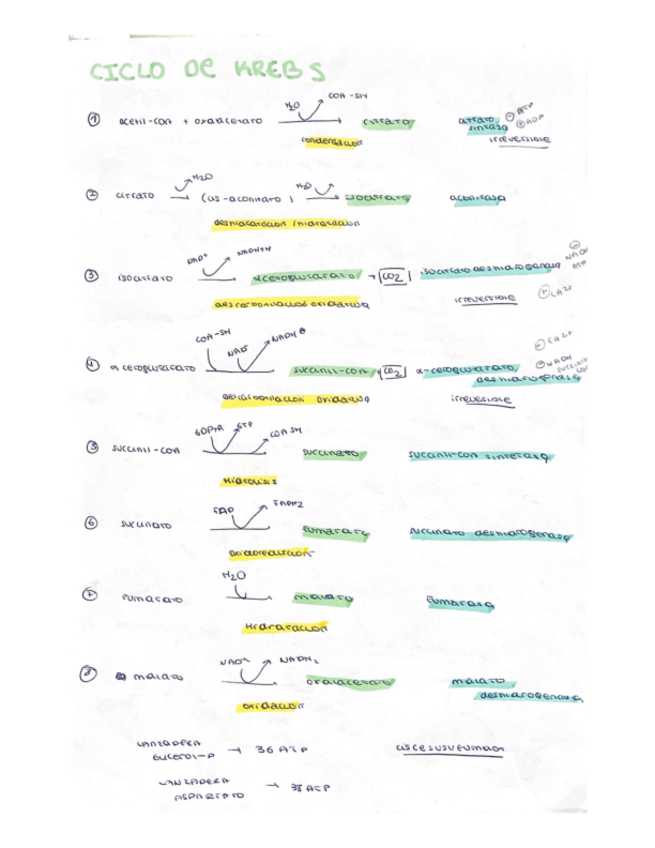 CICLO DE KREBS
① acetil-coA + oxalacetato H2O COA-SH citrato citrato sintasa ⊖ ATP ⊕ ADP
condensación irreversible
② citrato H2O (cis-aconitato) H2O isocitrato aconitasa
deshidratación / hidratación
③ isocitrato NAD+ NADH+H α-cetoglutarato + CO2 isocitrato deshidrogenasa ⊖ NADH ATP
descarboxilación oxidativa irreversible ⊕ Ca2+
④ α cetoglutarato COA-SH NAD+ NADH succinil-coA CO2 α-cetoglutarato deshidrogenasa ⊕ Ca2+ ⊖ NADH succinil
descarboxilación oxidativa irreversible
⑤ succinil-coA GTP COA SH succinato succinil-coA sintetasa
Hidrólisis
⑥ succinato FAD FADH2 fumarato succinato deshidrogenasa
oxidoreducción
⑦ fumarato H2O malato fumarasa
Hidratación
⑧ malato NAD+ NADH2 oxalacetato malato deshidrogenasa
oxidación
LANZADERA
GLICEROL-P → 36 ATP
LANZADERA
ASPARTATO → 38 ATP